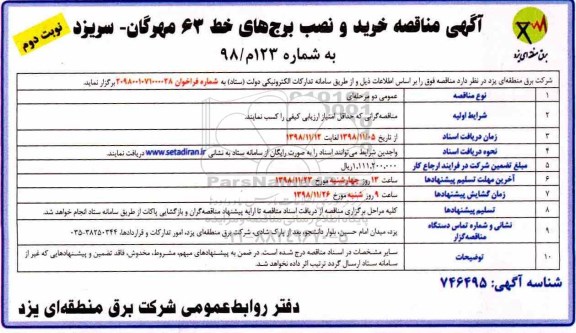 نوبت دوم
آگهی مناقصه خرید و نصب برج‌های خط ۶۳ مهرگان- سریزد
به شماره ۱۲۳م/۹۸
برق منطقه‌ای یزد
شرکت برق منطقه‌ای یزد در نظر دارد مناقصه فوق را بر اساس اطلاعات ذیل و از طریق سامانه تدارکات الکترونیکی دولت (ستاد) به شماره فراخوان ۲۰۹۸۰۰۱۰۷۱۰۰۰۰۲۸ برگزار نماید.
۱ نوع مناقصه عمومی دو مرحله‌ای
۲ شرایط اولیه مناقصه‌گرانی که حداقل امتیاز ارزیابی کیفی را کسب نمایند.
۳ زمان دریافت اسناد از تاریخ ۱۳۹۸/۱۱/۰۵ لغایت ۱۳۹۸/۱۱/۱۲
۴ نحوه دریافت اسناد واجدین شرایط می‌توانند اسناد را به صورت رایگان از سامانه ستاد به نشانی www.setadiran.ir دریافت نمایند.
۵ مبلغ تضمین شرکت در فرایند ارجاع کار ۱,۱۱۱,۲۰۰,۰۰۰ریال
۶ آخرین مهلت تسلیم پیشنهادها ساعت ۱۳ روز چهارشنبه مورخ ۱۳۹۸/۱۱/۲۳
۷ زمان گشایش پیشنهادها ساعت ۹ روز شنبه مورخ ۱۳۹۸/۱۱/۲۶
۸ تسلیم پیشنهادها کلیه مراحل برگزاری مناقصه از دریافت اسناد مناقصه تا ارایه پیشنهاد مناقصه‌گران و بازگشایی پاکات از طریق سامانه ستاد انجام خواهد شد.
۹ نشانی و شماره تماس دستگاه مناقصه‌گزار یزد، میدان امام حسین، بلوار دانشجو، بعد از پارک شادی، شرکت برق منطقه‌ای یزد، امور تدارکات و قراردادها، ۰۳۵-۳۸۲۵۰۳۴۴
۱۰ توضیحات سایر مشخصات در اسناد مناقصه درج شده است. در ضمن به پیشنهادهای مبهم، مشروط، مخدوش، فاقد تضمین و پیشنهادهایی که غیر از سامانه ستاد ارسال گردد ترتیب اثر داده نخواهد شد.
شناسه آگهی: ۷۴۶۴۹۵
دفتر روابط‌عمومی شرکت برق منطقه‌ای یزد